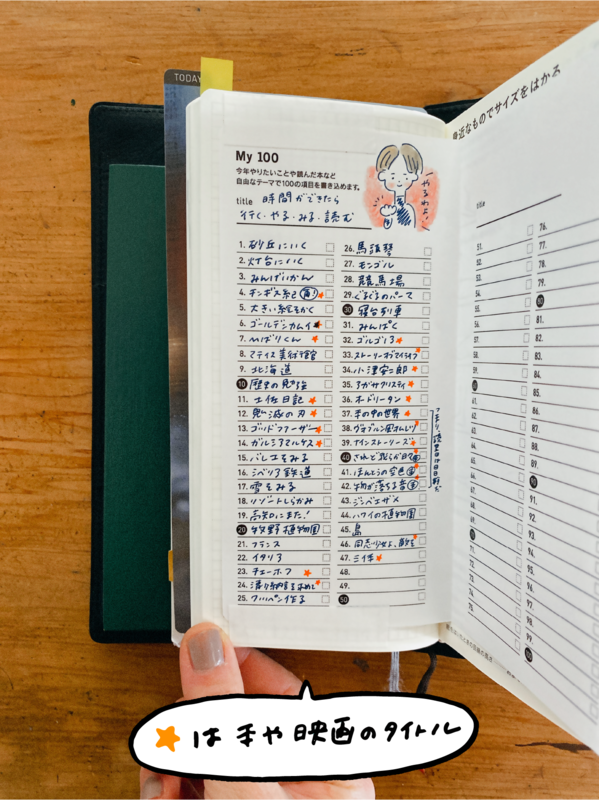 TODAY
My 100
今年やりたいことや読んだ本など
自由なテーマで100の項目を書き込めます。
title 時間ができたら
行く・やる・みる・読む
やるわよ!
1. 砂丘にいく
2. 灯台にいく
3. みんげいかん
4. チンギス紀
5. 大きい絵をかく
6. ゴールデンカムイ
7. いばりくん
8. マティス美術館
9. 北海道
10 歴史の勉強
11. 土佐日記
12. 鬼滅の刃
13. ゴッドファーザー
14. ガルシアマルケス
15. バレエをみる
16. シベリア鉄道
17. 雪をみる
18. リゾートしらかみ
19. 高知にまた!
20 牧野植物園
21. フランス
22. イタリア
23. チェーホフ
24.
25. クリスペン作る
26. 馬頭琴
27. モンゴル
28. 競馬場
29. ぐるぐるのパーマ
30 寝台列車
31. みんぱく
32. ゴルゴ13
33. ストーリーオブマイライフ
34. 小津安二郎
35. アガサクリスティ
36. オードリータン
37. 手の中の世界
38. グラブルン風オムレツ
39. ナインストーリーズ
40 されど我らが日々
41. ほんとうの空色
42. 物が落ちる音
43. ジンベエザメ
44. ハワイの植物園
45. 島
46. 同志少女よ、敵を
47. 三体
48.
49.
50
身近なものでサイズをはかる
title
51.
52.
53.
54.
55.
56.
57.
58.
59.
60
61.
62.
63.
64.
65.
66.
67.
68.
69.
70
71.
72.
73.
74.
75.
76.
77.
78.
79.
80
81.
82.
83.
84.
85.
86.
87.
88.
89.
90
91.
92.
93.
94.
95.
96.
97.
98.
99.
100
は 本や映画のタイトル